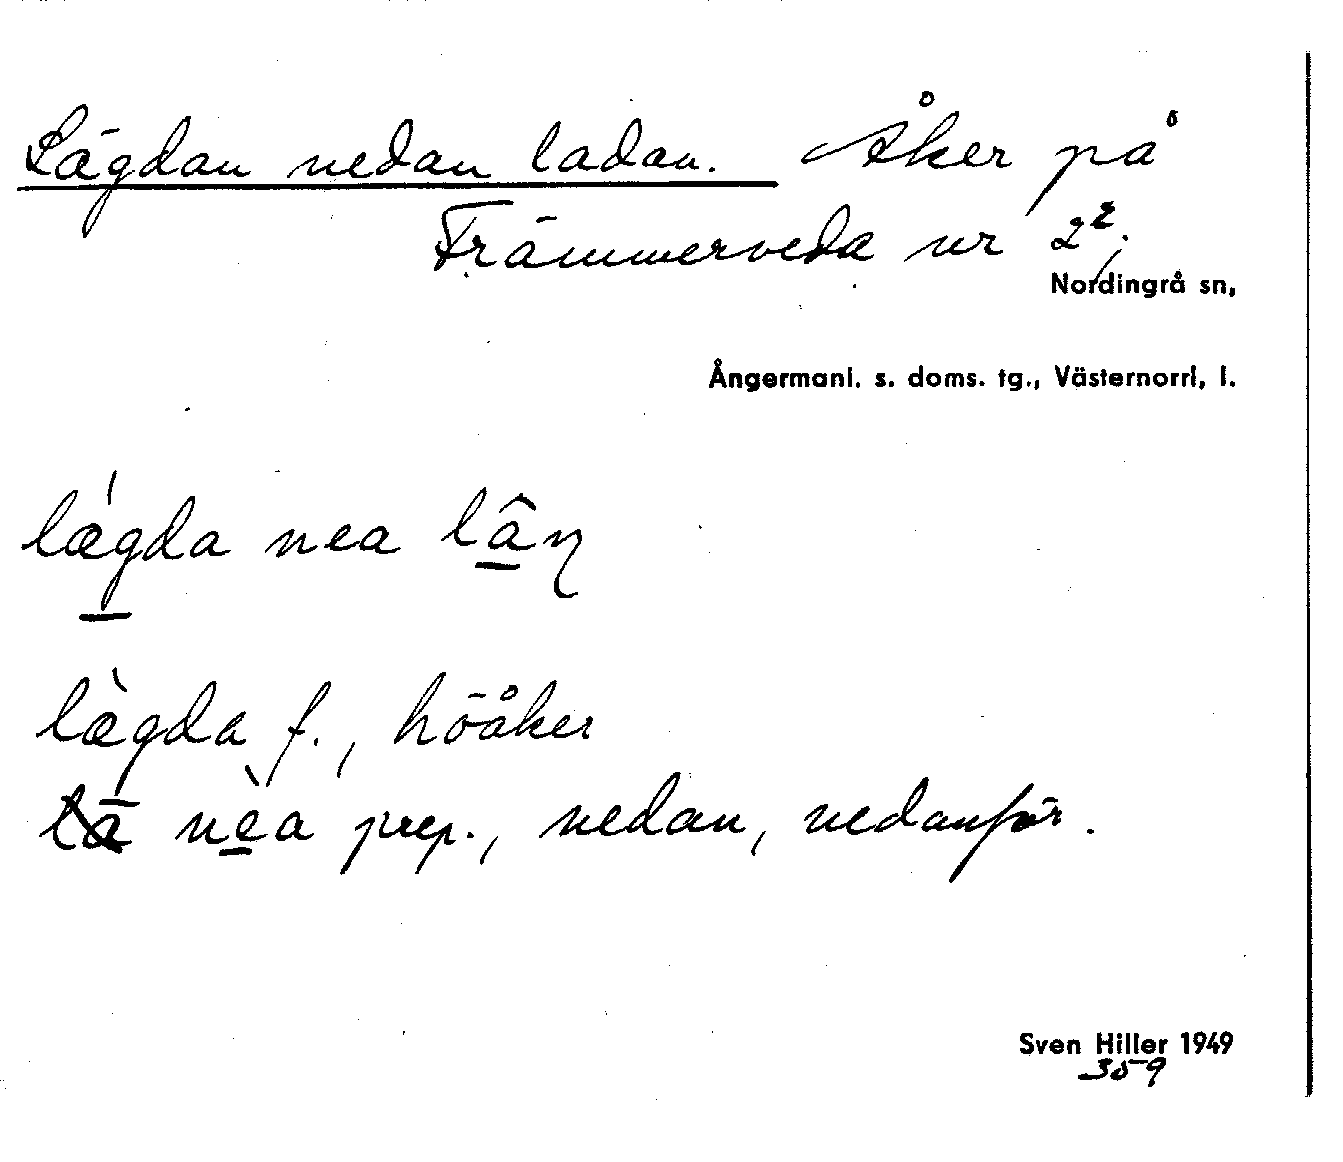 Lägdan nedan ladan. Åker på
Främmerveda nr 2²,
Nordingrå sn,
Ångermanl. s. doms. tg., Västernorrl, l.
lǽgda nea lâŋ
lægda f., höåker
nèa prep., nedan, nedanför.
Sven Hiller 1949
359